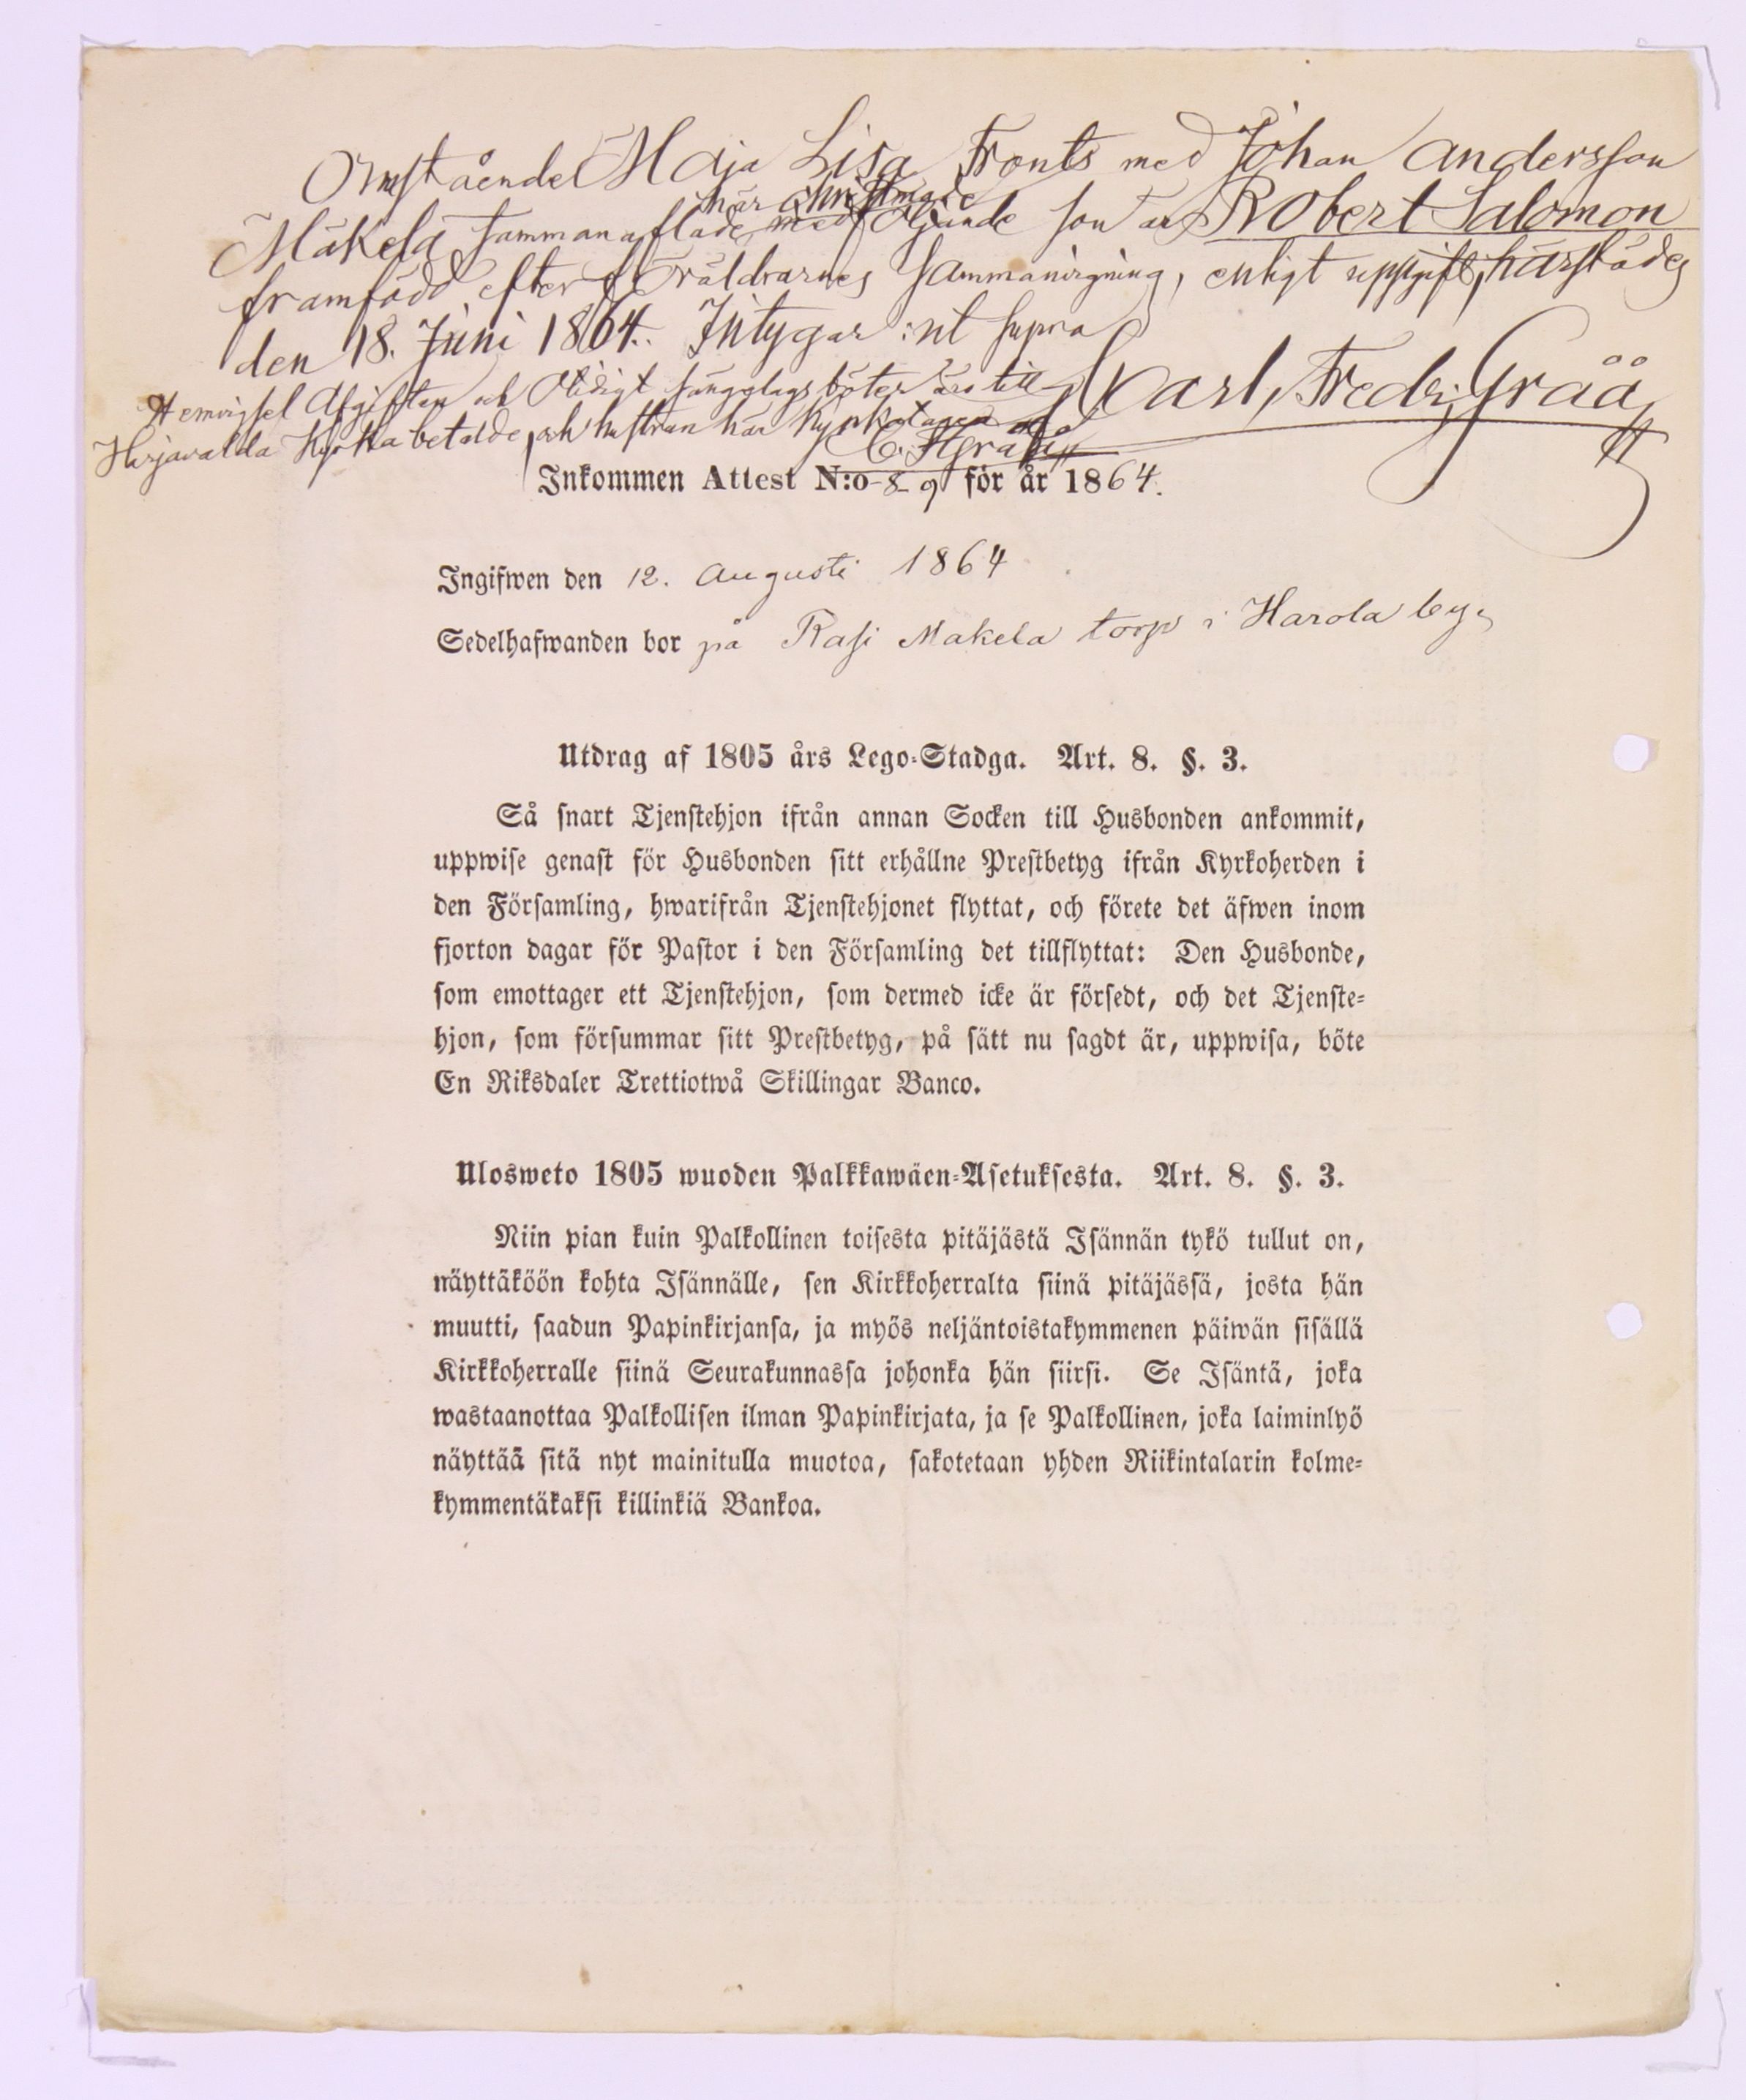 Omstående Maja Lisa Fronts med Johan Andersson
här christnade
Mäkelä samman aflade medföljande son är Robert Salomon
framfödd efter föräldrarnes sammanvigning, enligt uppgift, härstädes
den 18. Juni 1864. Intygar: ut supra
Carl, Fredr; Gråå,
Hemvigsel Afgiften och Otidigt sängelags böter äro till
Harjavalda Kyrka betalde, och hustrun här kyrkotagen af
C. F. Gråå,,
Inkommen Attest N:o 89 för år 1864.
Ingifwen den 12. Augusti 1864
Sedelhafwanden bor på Rasi Makela torp i Harola by,
Utdrag af 1805 års Lego-Stadga. Art. 8. §. 3.
Så snart Tjenstehjon ifrån annan Socken till Husbonden ankommit,
uppwise genast för Husbonden sitt erhållne Prestbetyg ifrån Kyrkoherden i
den Församling, hwarifrån Tjenstehjonet flyttat, och förete det äfwen inom
fjorton dagar för Pastor i den Församling det tillflyttat: Den Husbonde,
som emottager ett Tjenstehjon, som dermed icke är försedt, och det Tjenste-
hjon, som försummar sitt Prestbetyg, på sätt nu sagdt är, uppwisa, böte
En Riksdaler Trettiotwå Skillingar Banco.
Ulosweto 1805 wuoden Palkkawäen-Asetuksesta. Art. 8. §. 3.
Niin pian kuin Palkollinen toisesta pitäjästä Isännän tykö tullut on,
näyttäköön kohta Isännälle, sen Kirkkoherralta siinä pitäjässä, josta hän
muutti, saadun Papinkirjansa, ja myös neljäntoistakymmenen päiwän sisällä
Kirkkoherralle siinä Seurakunnassa johonka hän siirsi. Se Isäntä, joka
wastaanottaa Palkollisen ilman Papinkirjata, ja se Palkollinen, joka laiminlyö
näyttää sitä nyt mainitulla muotoa, sakotetaan yhden Riikintalarin kolme-
kymmentäkaksi killinkiä Bankoa.